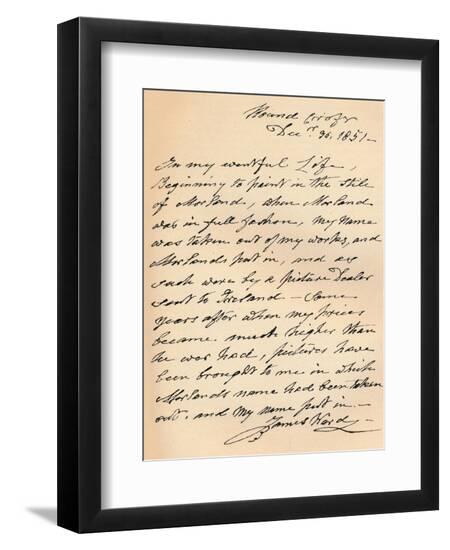 Round Croft
Decr. 30. 1851—
In my eventful Life,
Beginning to paint in the stile
of Morland, when Morland
was in full fashion, my name
was taken out of my works, and
Morlands put in, and as
such were by a picture Dealer
sent to Ireland — some
years after when my prices
became much higher than
he ever had, pictures have
been brought to me in which
Morlands name had been taken
out. and my name put in. —
James Ward —